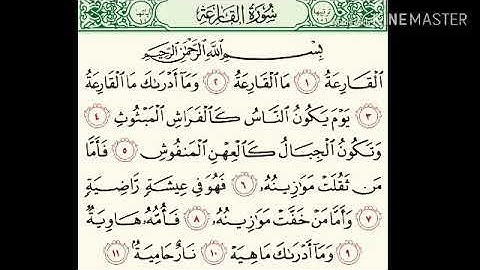 KINEMASTER
سُورَةُ القَارِعَةِ
بِسْمِ اللَّهِ الرَّحْمَٰنِ الرَّحِيمِ
الْقَارِعَةُ ١ مَا الْقَارِعَةُ ٢ وَمَا أَدْرَىٰكَ مَا الْقَارِعَةُ
٣ يَوْمَ يَكُونُ النَّاسُ كَالْفَرَاشِ الْمَبْثُوثِ ٤
وَتَكُونُ الْجِبَالُ كَالْعِهْنِ الْمَنْفُوشِ ٥ فَأَمَّا
مَن ثَقُلَتْ مَوَازِينُهُ ٦ فَهُوَ فِي عِيشَةٍ رَّاضِيَةٍ
٧ وَأَمَّا مَنْ خَفَّتْ مَوَازِينُهُ ٨ فَأُمُّهُ هَاوِيَةٌ
٩ وَمَا أَدْرَىٰكَ مَا هِيَهْ ١٠ نَارٌ حَامِيَةٌ ١١